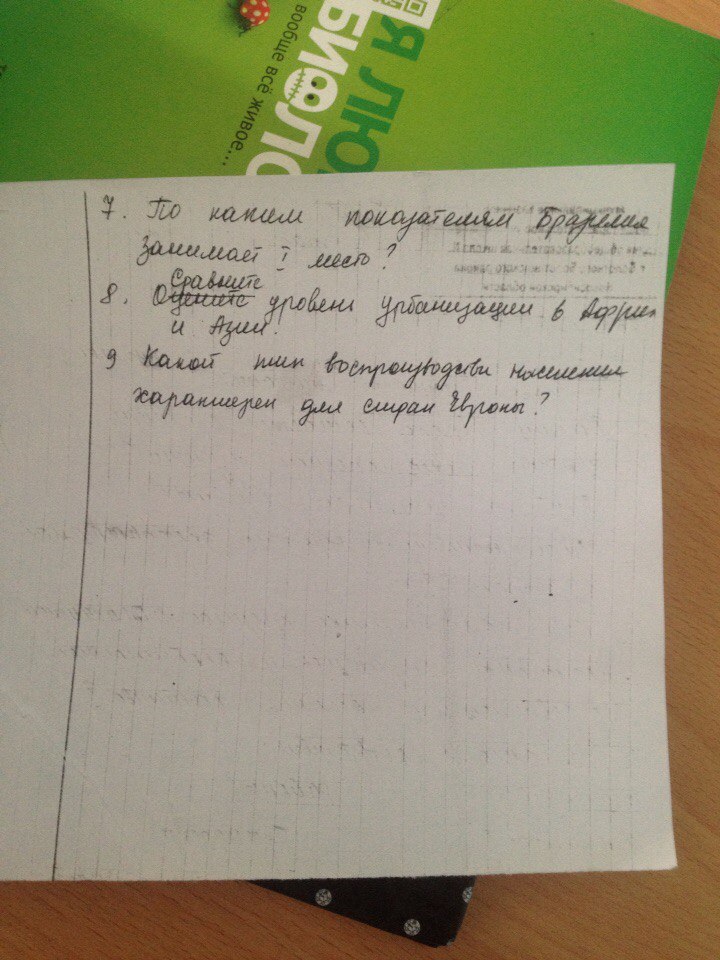 вообще всё живое...
Я ЛЮ
БИОЛО
7. По каким показателям Бразилия
занимает I место?
Сравните
8. Оцените уровень урбанизации в Африк
и Азии.
9 Какой тип воспроизводства населения
характерен для стран Европы?